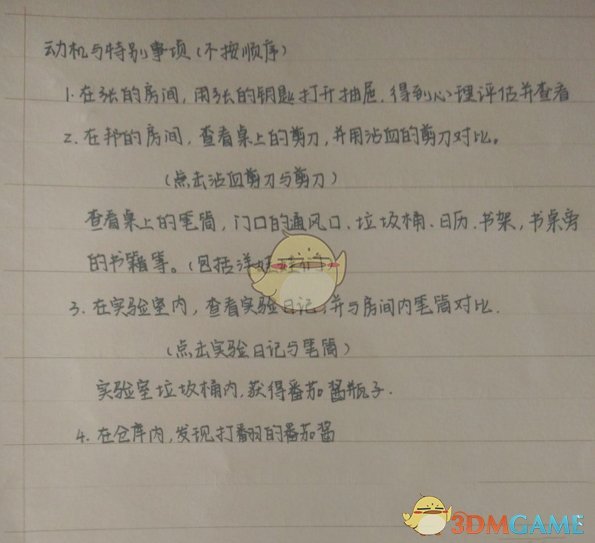 动机与特别事项(不按顺序)
1. 在张的房间,用张的钥匙打开抽屉.得到心理评估并查看
2. 在邦的房间,查看桌上的剪刀,并用沾血的剪刀对比。
(点击沾血剪刀与剪刀)
查看桌上的笔筒,门口的通风口、垃圾桶、日历、书架,书桌旁
的书籍等。(包括洋
3. 在实验室内,查看实验日记,并与房间内笔筒对比.
(点击实验日记与笔筒)
实验室垃圾桶内,获得番茄酱瓶子.
4. 在仓库内,发现打翻的番茄酱
3DMGAME